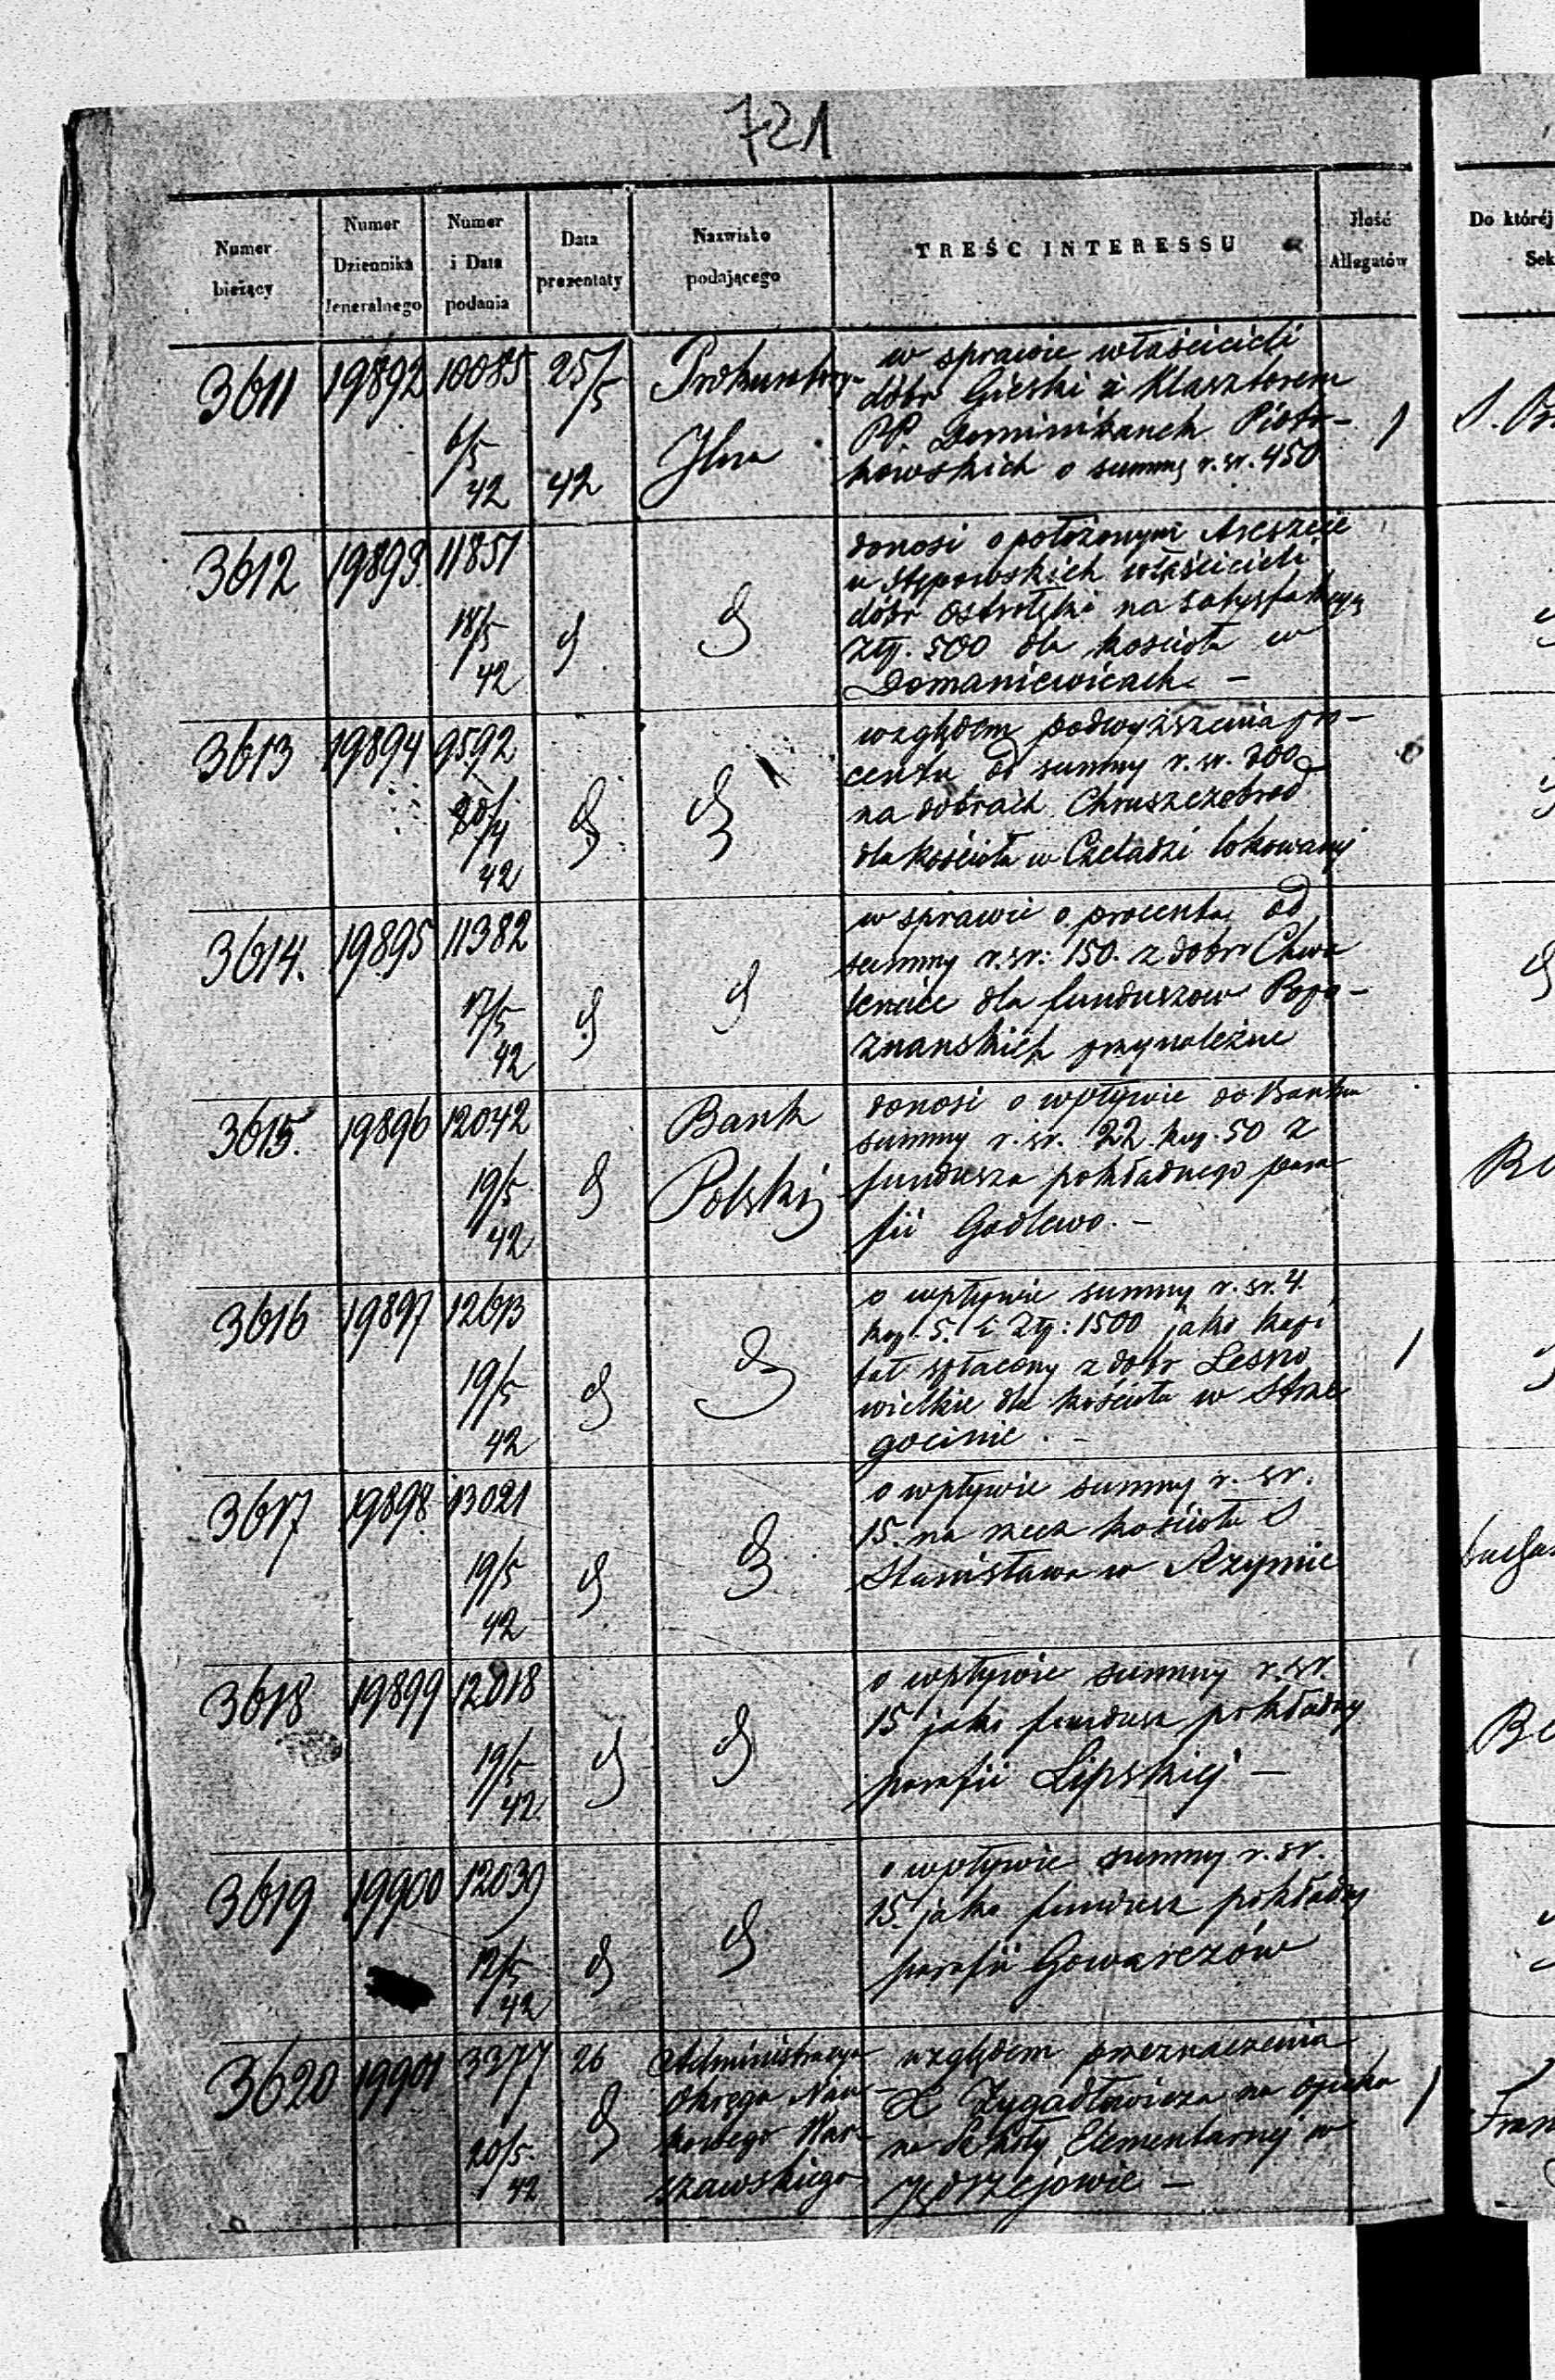 721
Numer bieżący
Numer Dziennika Jeneralnego
Numer i Data podania
Data prezentaty
Nazwisko podającego
TREŚĆ INTERESSU
Ilość Allegatów
Do któréj Sek
3611 19892 10085 6/5 42 25/5 42 Prokurator Jlna
w sprawie właścicieli
dóbr Gieski z Klasztorem
PP. Dominikanek Piotr-
kowskich o summę r. sr. 450
3612 19893 11851 18/5 42 d d
donosi o położonym Areszcie
u Stępowskich właścicieli
dóbr Ostrołęki na satysfakcyę
złp. 500 dla kościoła w
Domaniewicach. –
3613 19894 9592 20/4 42 d d
względem podwyższenia pro-
centu od summy r. sr. 300
na dobrach Chruszczobrod
dla kościoła w Czeladzi lokowanej
3614. 19895 11382 17/5 42 d d
w sprawie o procenta od
summy r. sr: 150. z dobr Chwa
lenice dla funduszow Popo-
znanskich przynależne
3615. 19896 12042 19/5 42 d Bank Polski
donosi o wpływie do Banku
summy r. sr. 22. kop. 50 z
fundusza pokładnego para
fii Godlewo. –
3616 19897 12613 19/5 42 d d
o wpływie summy r. sr. 4.
kop. 5. i Złp: 1500 jako kapi
tał spłacony z dobr Lesno
wielkie dla kościoła w Strze
gocinie. –
3617 19898 13021 19/5 42 d d
o wpływie summy r. sr.
15. na rzecz kościoła S
Stanisława w Rzymie
3618 19899 12018 19/5 42 d d
o wpływie summy r. sr.
15 jako fundusz pokładny
parafii Lipskiej –
3619 19900 12039 12/5 42 d d
o wpływie summy r. sr.
15. jako fundusz pokładny
parafii Gowarczów
3620 19901 3377 20/5. 42 26 d Administracya Okręgu Nau- kowego War- szawskiego
względem przeznaczenia
X Zygadlewicza na opieku
na Szkoły Elementarnej w
Jędrzejowie –